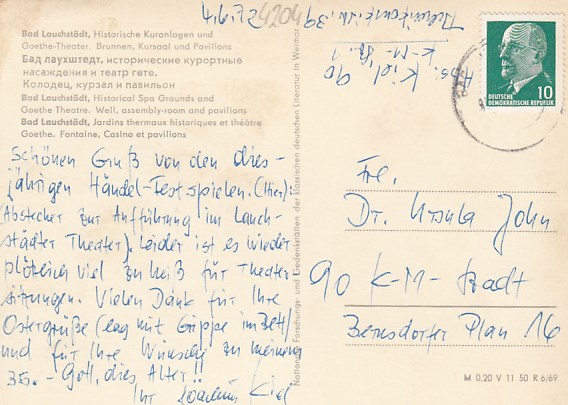 Bad Lauchstädt, Historische Kuranlagen und
Goethe-Theater. Brunnen, Kursaal und Pavillons
Бад лаухштедт, исторические курортные
насаждения и театр гете.
Колодец, курзал и павильон
Bad Lauchstädt, Historical Spa Grounds and
Goethe Theatre. Well, assembly-room and pavilions
Bad Lauchstädt, Jardins thermaux historiques et théâtre
Goethe. Fontaine, Casino et pavillons
Schönen Gruß von den dies-
jährigen Händel-Festspielen. (Hier):
Abstecher zur Aufführung im Lauch-
städter Theater). Leider ist es wieder
plötzlich viel zu heiß für Theater-
sitzungen. Vielen Dank für Ihre
Ostergrüße (lag mit Grippe im Bett)
und für Ihre Wünsche zu meinem
35. - Gott, dies Alter!!
Ihr Kiel
Nationale Forschungs- und Gedenkstätten der klassischen deutschen Literatur in Weimar
4204
Abs. Kiel, 90
K-M-St. 1
39
DEUTSCHE
DEMOKRATISCHE REPUBLIK
10
Dr. Ursula John
90 K-M-Stadt
Bernsdorfer Plan 16
M 0,20 V 11 50 R 6/69